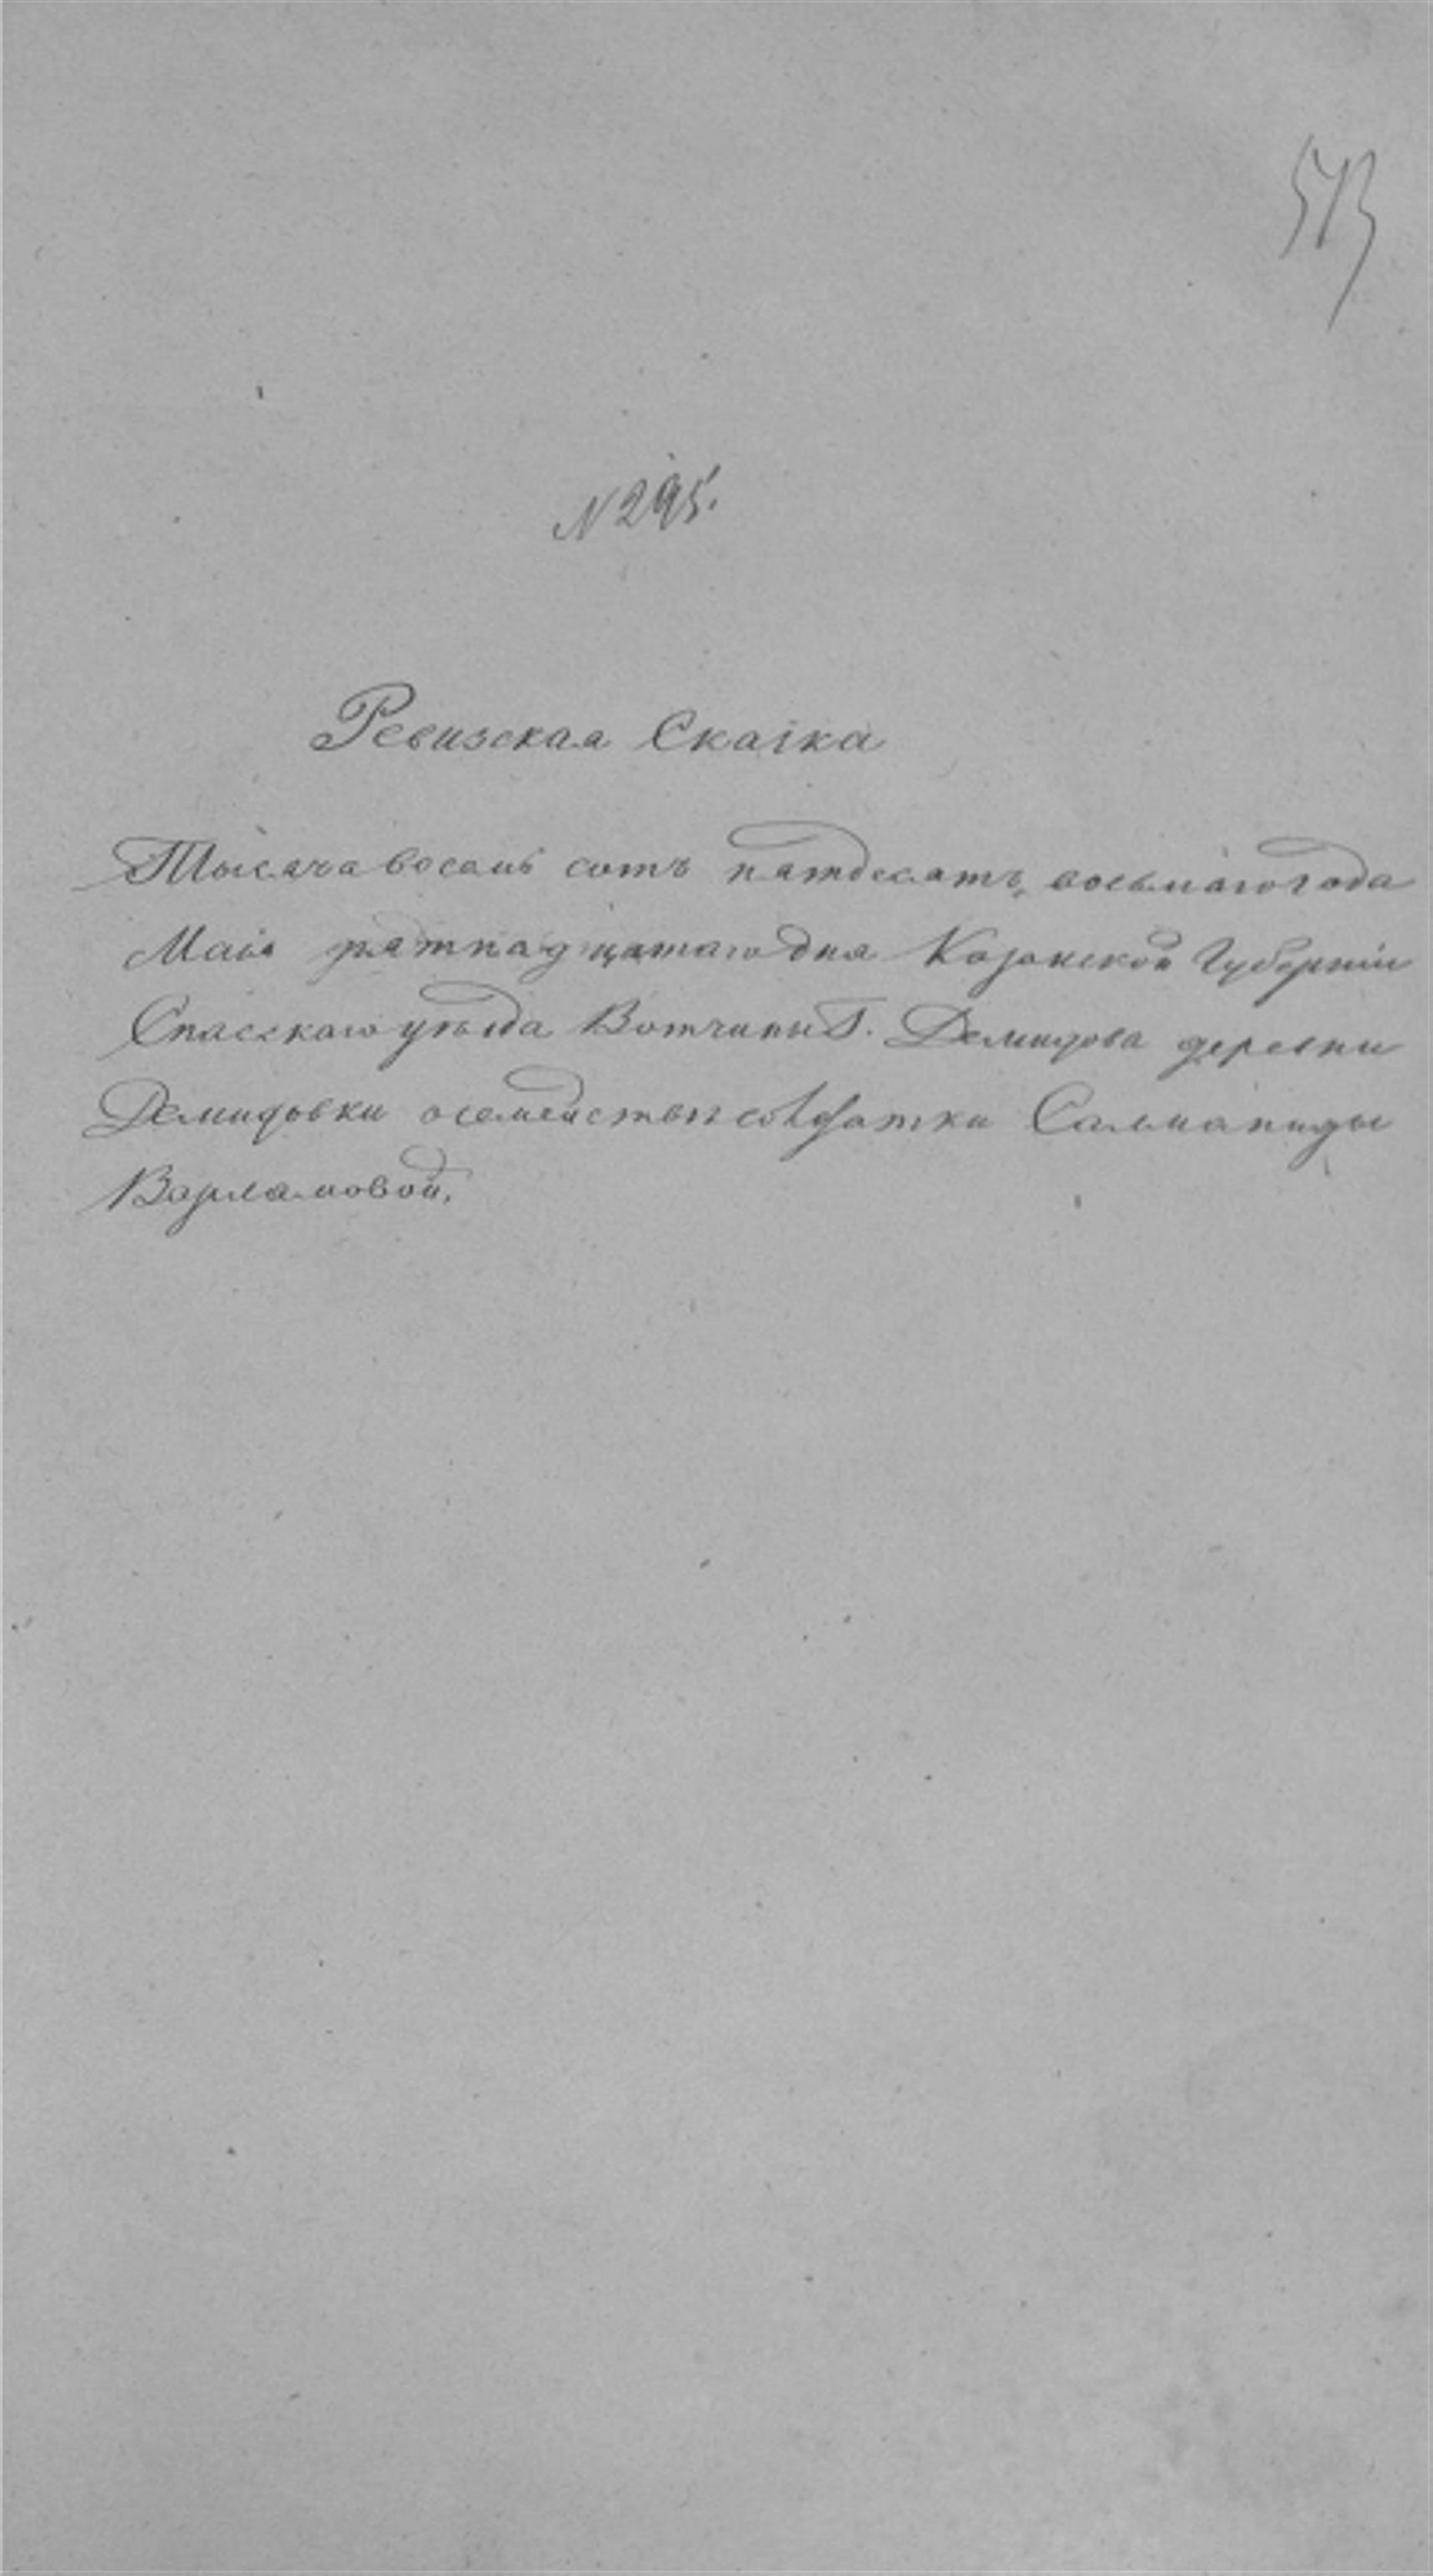 513
№ 295.
Ревизская Сказка
Тысяча восемь сотъ пятдесятъ восьмаго года
Маiя пятнадцатаго дня Казанской Губернiи
Спасскаго уѣзда Вотчины Г. Демидова деревни
Демидовки о семействѣ солдатки Саломаниды
Варламовой.